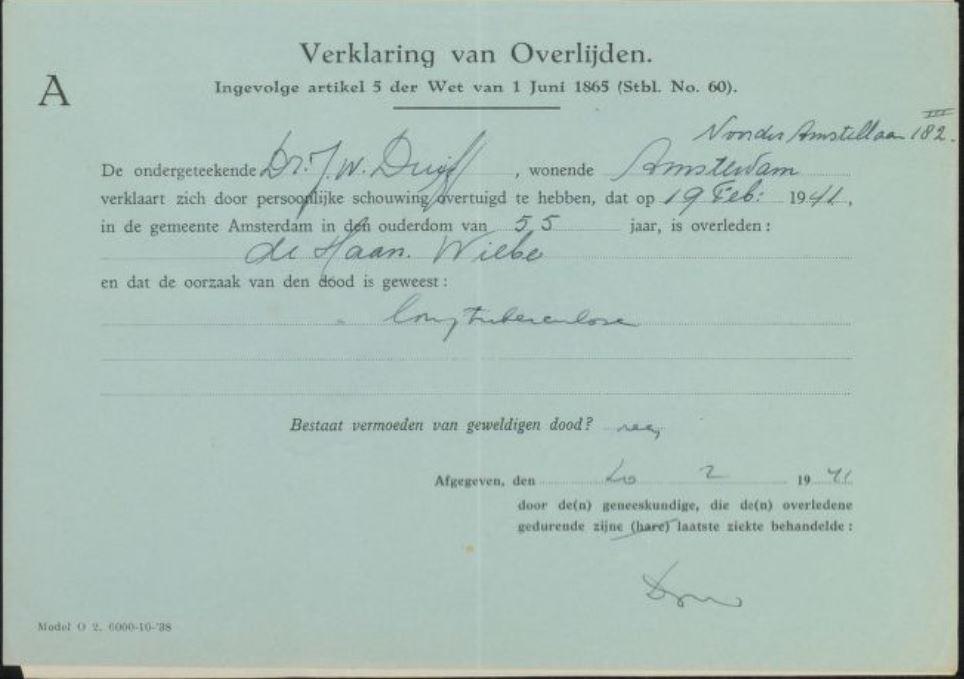 Verklaring van Overlijden.
A
Ingevolge artikel 5 der Wet van 1 Juni 1865 (Stbl. No. 60).
Noorder Amstellaan 182 III.
De ondergeteekende Dr. J. W. Duyff, wonende Amsterdam
verklaart zich door persoonlijke schouwing overtuigd te hebben, dat op 19 Feb: 1941,
in de gemeente Amsterdam in den ouderdom van 55 jaar, is overleden:
de Haan. Wiebe
en dat de oorzaak van den dood is geweest:
longtuberculose
Bestaat vermoeden van geweldigen dood? neen
Afgegeven, den 20 2 1941
door de(n) geneeskundige, die de(n) overledene
gedurende zijne (hare) laatste ziekte behandelde:
Model O 2. 6000-10-'38